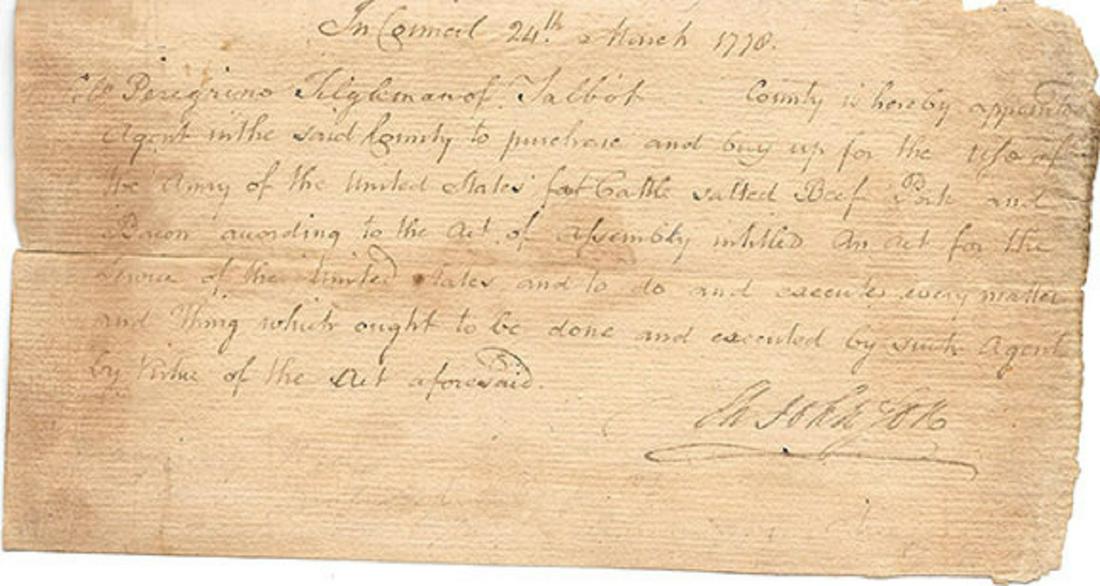 In Council 24th March 1778.
Peregrine Tilghman of Talbot County is hereby appointed
Agent in the said County to purchase and buy up for the Use of
the Army of the United States fat Cattle salted Beef Pork and
Bacon according to the Act of Assembly intitled An Act for the
Service of the United States and to do and execute every matter
and Thing which ought to be done and executed by such Agent
by Virtue of the Act aforesaid.
Th Johnson